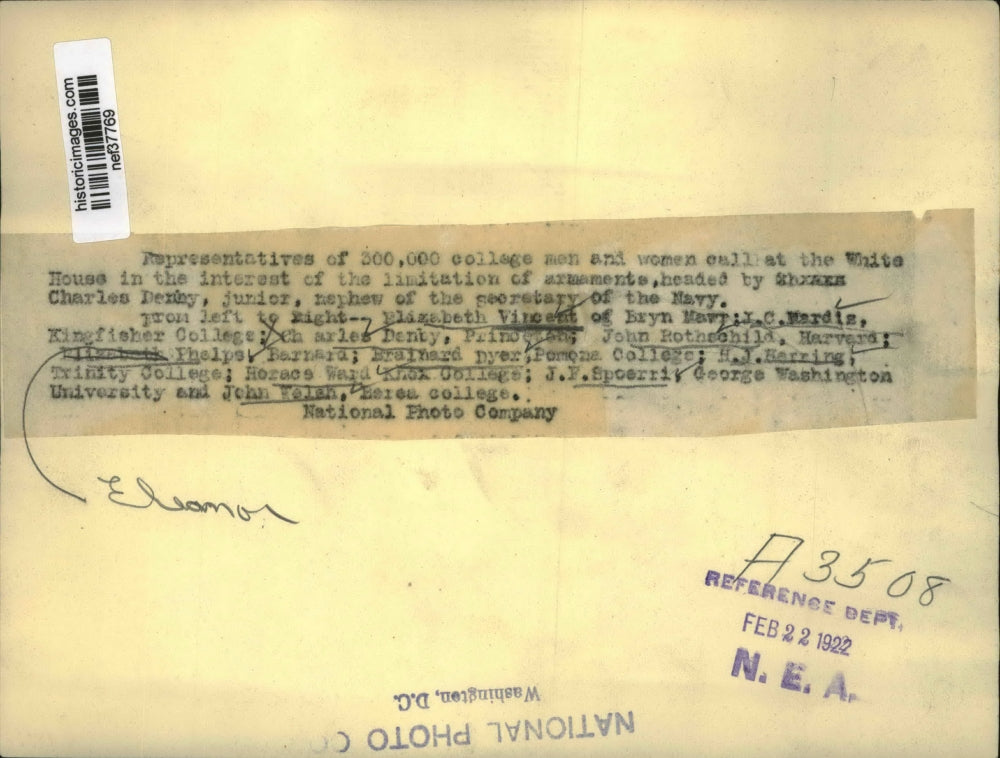 historicimages.com
nef37769
Representatives of 300,000 college men and women call at the White
House in the interest of the limitation of armaments,headed by
Charles Denby, junior, nephew of the secretary of the Navy.
From left to Right-- Elizabeth Vincent of Bryn Mawr;L.C.Mardis,
Kingfisher College; Ch arles Denby, Princeton; John Rothschild, Harvard;
Elizabeth Phelps, Barnard; Brainard Dyer,Pomona College; H.J.Herring,
Trinity College; Horace Ward Knox College; J.F.Spoerri, George Washington
University and John Welsh, Berea college.
National Photo Company
Eleanor
A3508
REFERENCE DEPT.
FEB 22 1922
N. E. A.
Washington, D.C.
NATIONAL PHOTO CO